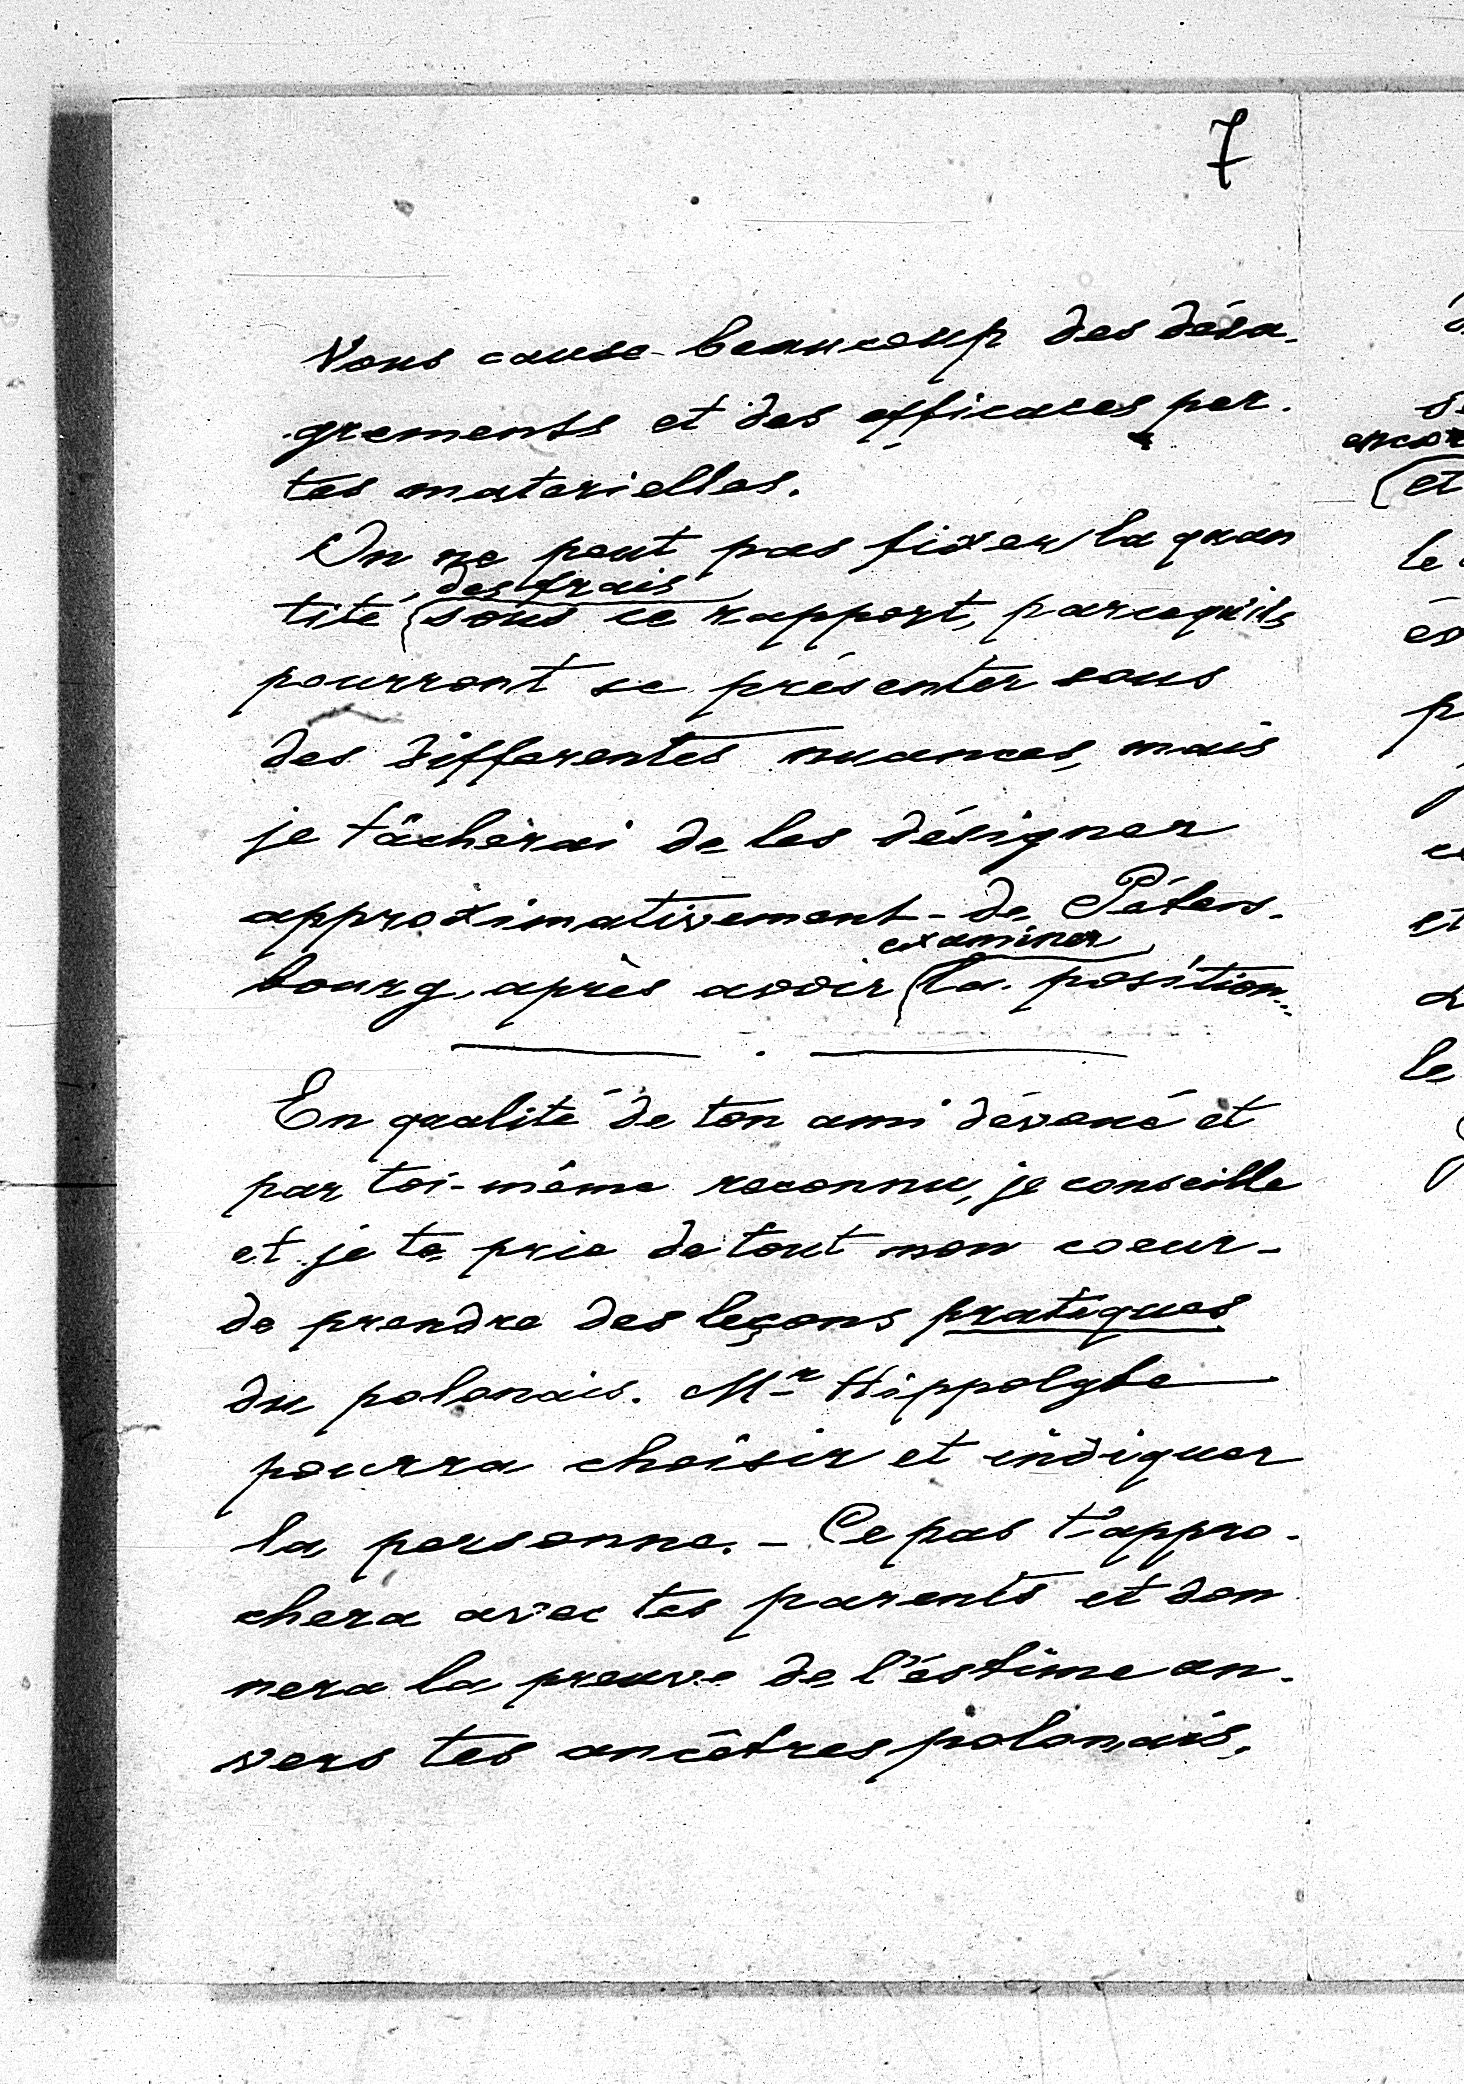 7
Vous cause beaucoup des désa-
grements et des efficaces per-
tes materielles.
On ne peut pas fixer la quan
des frais
tité sous ce rapport, parcequ'ils
pourront se présenter sous
des differentes nuances, mais
je tâcherai de les désigner
approximativement - de Péters-
examiner
bourg, après avoir la position...
En qualité de ton ami dévoué et
par toi-même reconnu, je conseille
et je te prie de tout mon coeur -
de prendre des leçons pratiques
du polonais. Mr Hippolyte
pourra choisir et indiquer
la personne. - Ce pas t'appro-
chera avec tes parents et don
nera la preuve de l'éstime en-
vers tes ancêtres polonais,
encor
et
le